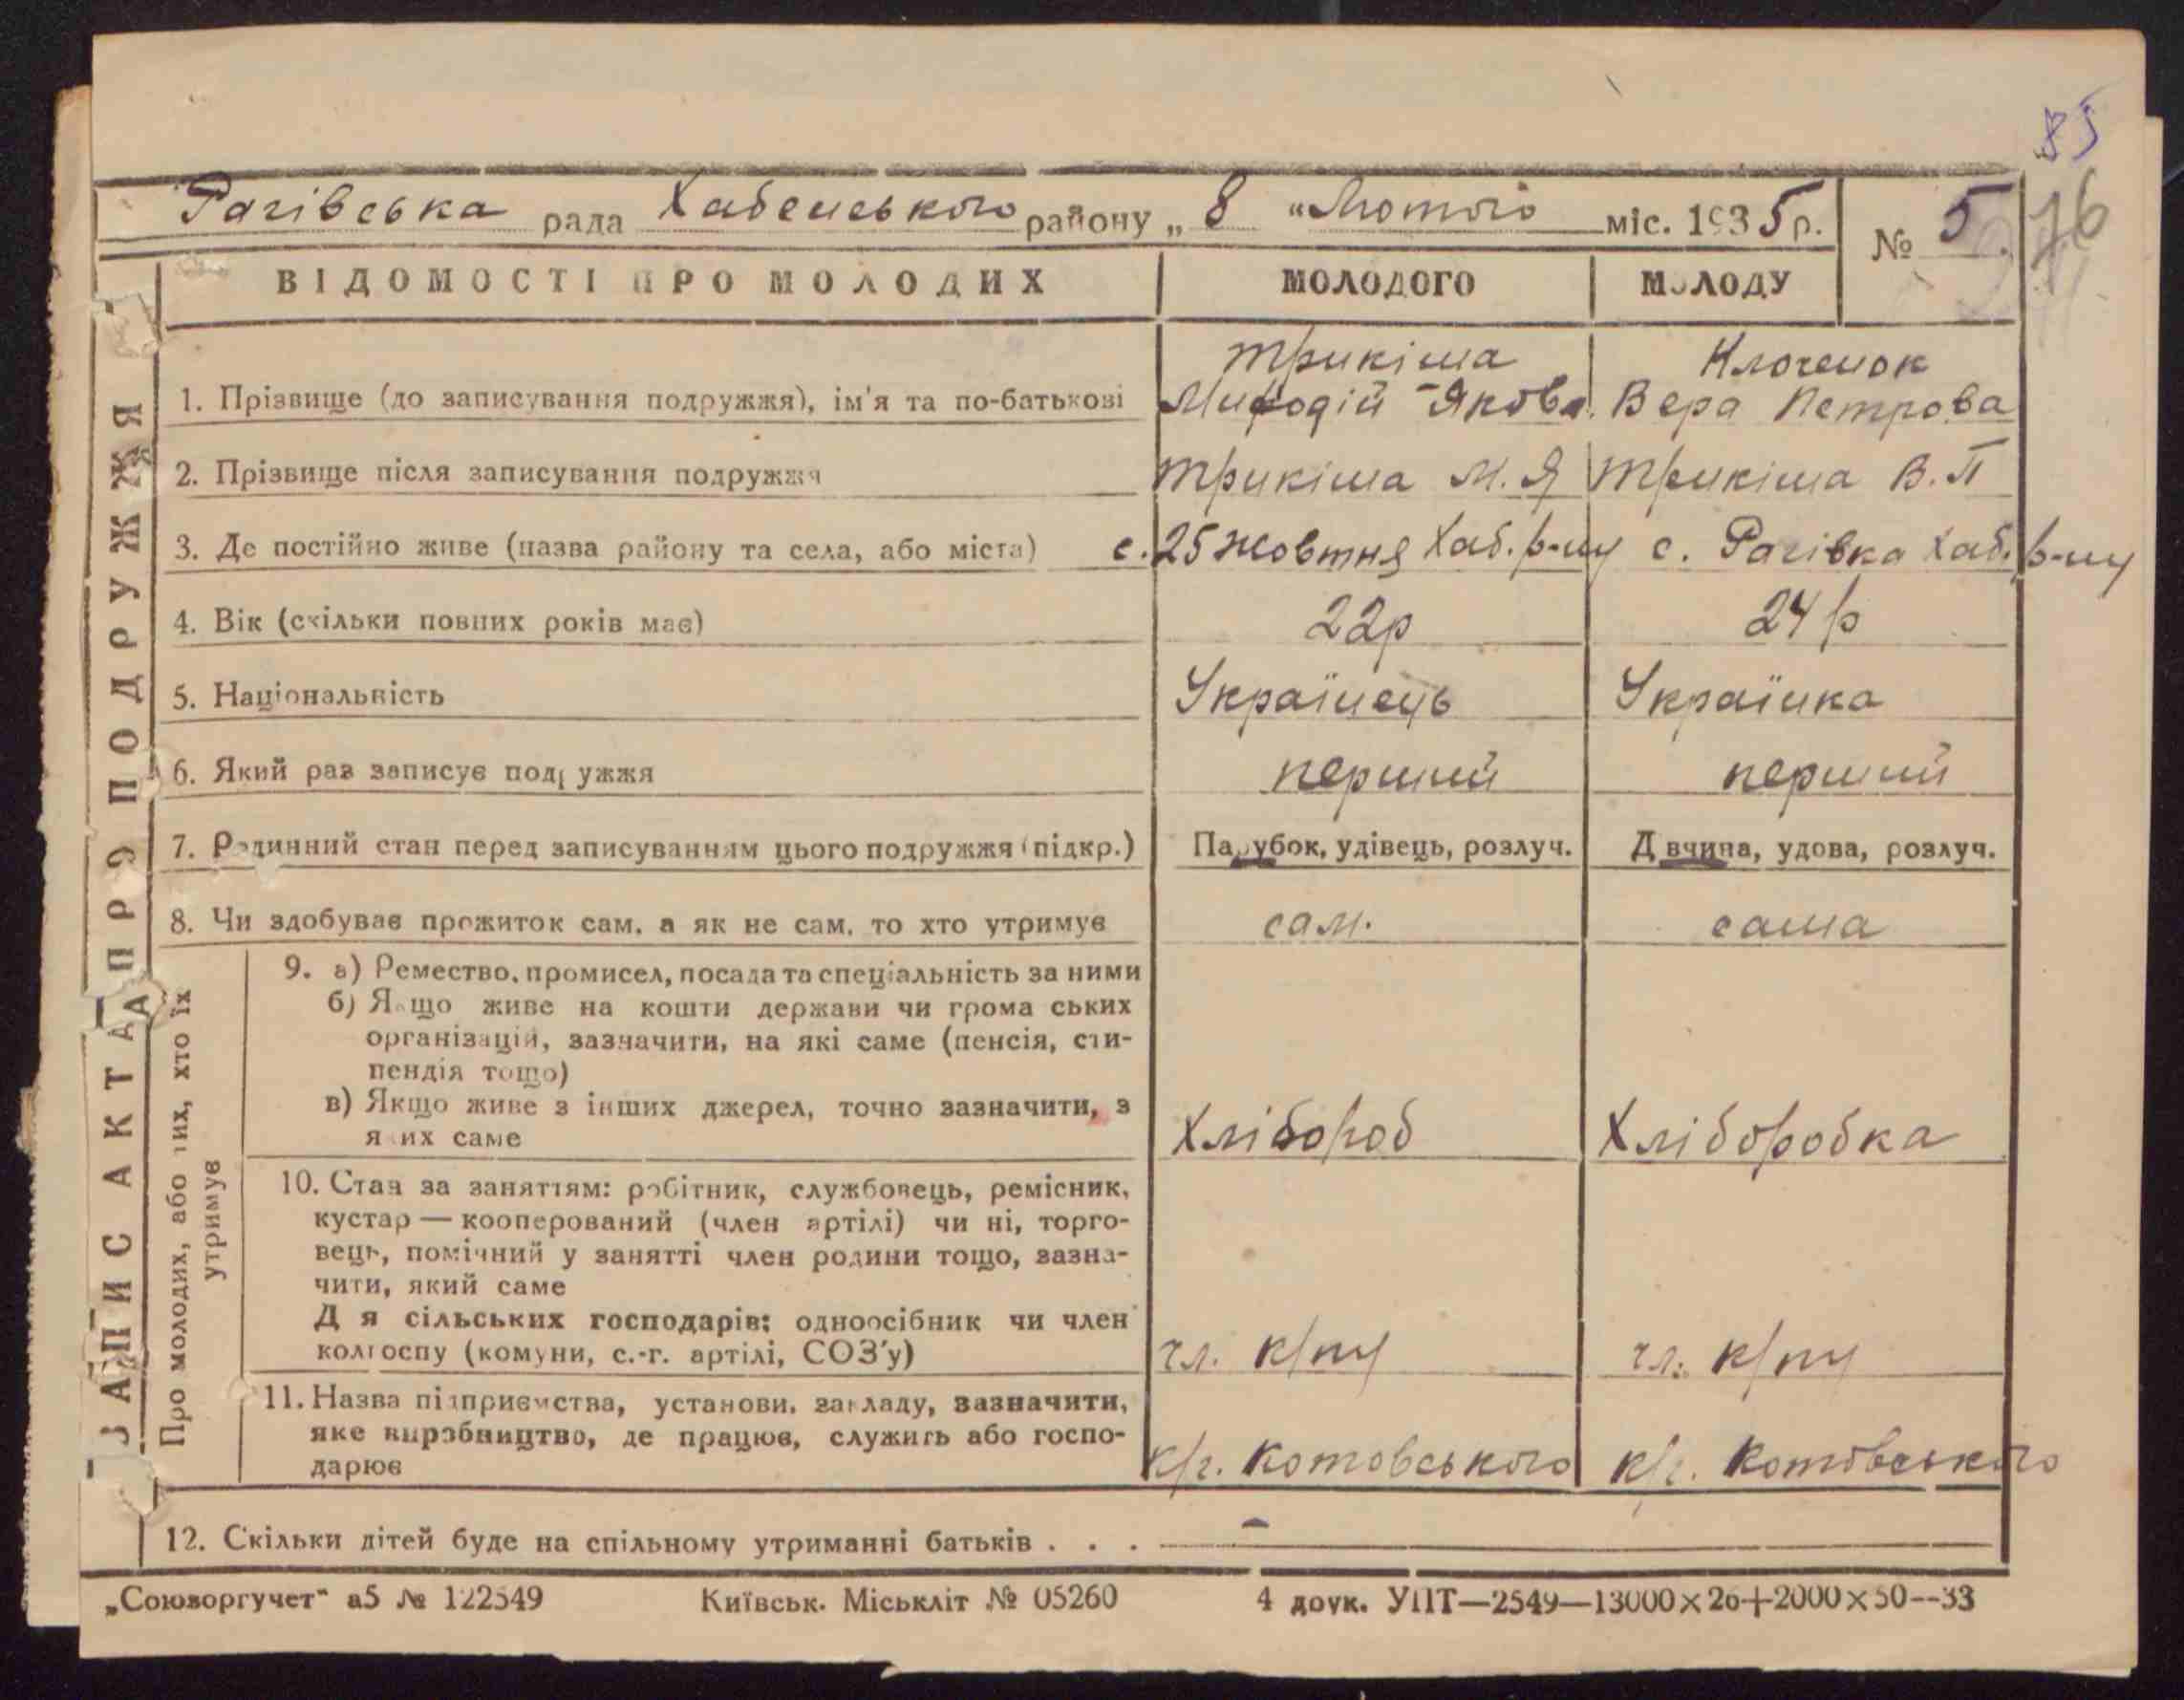 85
76
Рагівська рада Хабенського району „ 8 " Лютого міс. 1935 р. № 5
ВІДОМОСТІ ПРО МОЛОДИХ МОЛОДОГО МОЛОДУ
ЗАПИС АКТА ПРО ПОДРУЖЖЯ
1. Прізвище (до записування подружжя), ім'я та по-батькові Трикіша Мифодій Якова. Клоченок Вера Петрова
2. Прізвище після записування подружжя Трикіша М. Я Трикіша В. П
3. Де постійно живе (назва району та села, або міста) с. 25 Жовтня Хаб. р-ну с. Рагівка Хаб. р-ну
4. Вік (скільки повних років має) 22р 24 р
5. Національність Українець Українка
6. Який раз записує подружжя перший перший
7. Родинний стан перед записуванням цього подружжя (підкр.) Парубок, удівець, розлуч. Дівчина, удова, розлуч.
8. Чи здобуває прожиток сам, а як не сам, то хто утримує сам. сама
Про молодих, або тих, хто їх
утримує
9. а) Ремество, промисел, посада та спеціальність за ними
б) Якщо живе на кошти держави чи громадських
організацій, зазначити, на які саме (пенсія, сти-
пендія тощо)
в) Якщо живе з інших джерел, точно зазначити, з
яких саме Хлібороб Хліборобка
10. Стан за заняттям: робітник, службовець, ремісник,
кустар — кооперований (член артілі) чи ні, торго-
вець, помічний у занятті член родини тощо, зазна-
чити, який саме
Для сільських господарів: одноосібник чи член
колгоспу (комуни, с.-г. артілі, СОЗ'у) чл. к/пу чл. к/пу
11. Назва підприємства, установи, закладу, зазначити,
яке виробництво, де працює, служить або госпо-
дарює к/г. Котовського к/г. Котовського
12. Скільки дітей буде на спільному утриманні батьків . . . –
„Союзоргучет" а5 № 122549 Київськ. Міськліт № 05260 4 друк. УПТ—2549—13000×26+2000×50--33